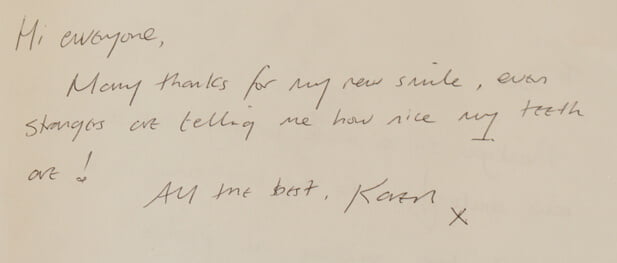 Hi everyone,
Many thanks for my new smile, even
strangers are telling me how nice my teeth
are!
All the best, Karen x